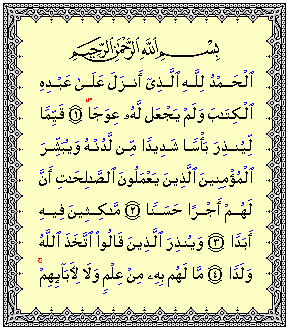 بِسْمِ ٱللَّهِ ٱلرَّحْمَٰنِ ٱلرَّحِيمِ
ٱلْحَمْدُ لِلَّهِ ٱلَّذِىٓ أَنزَلَ عَلَىٰ عَبْدِهِ
ٱلْكِتَٰبَ وَلَمْ يَجْعَل لَّهُۥ عِوَجَاۜ ﴿١﴾ قَيِّمًا
لِّيُنذِرَ بَأْسًا شَدِيدًا مِّن لَّدُنْهُ وَيُبَشِّرَ
ٱلْمُؤْمِنِينَ ٱلَّذِينَ يَعْمَلُونَ ٱلصَّٰلِحَٰتِ أَنَّ
لَهُمْ أَجْرًا حَسَنًا ﴿٢﴾ مَّٰكِثِينَ فِيهِ
أَبَدًا ﴿٣﴾ وَيُنذِرَ ٱلَّذِينَ قَالُوا۟ ٱتَّخَذَ ٱللَّهُ
وَلَدًا ﴿٤﴾ مَّا لَهُم بِهِۦ مِنْ عِلْمٍ وَلَا لِءَابَآئِهِمْ ۚ